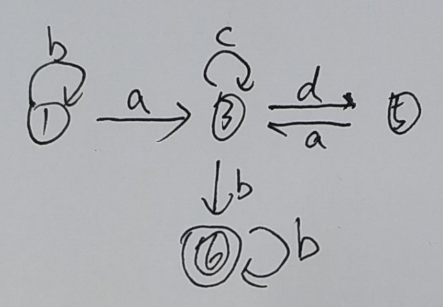 b c
a d
1 3 5
a
b
6 b